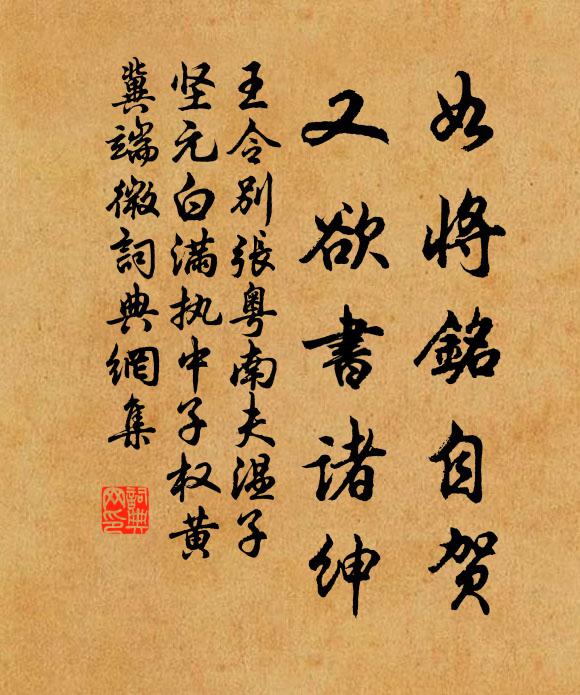 如将銘自贺
又欲書诸紳
王令别張粤南夫温子
坚元白满执中子权黄
冀端微詞典網集
詞典